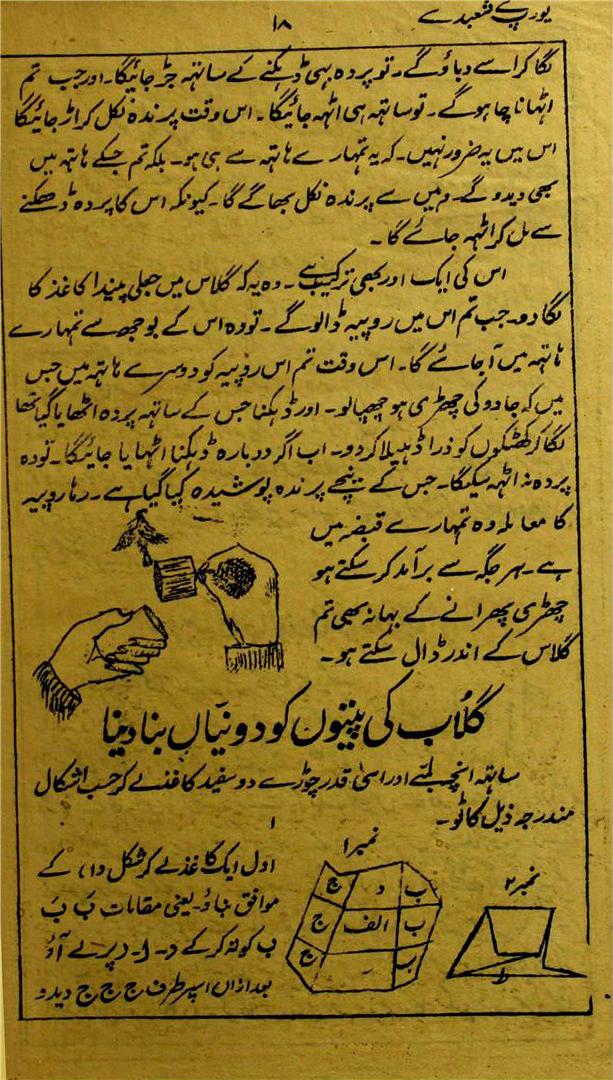 یورپ کے شعبدے
۱۸
لگا کر اسے دباؤ گے۔ تو پردہ بھی ڈہکنے کے ساتہہ جڑ جائیگا۔ اور جب تم
اٹہانا چاہو گے۔ تو ساتہہ ہی اٹہہ جائیگا۔ اس وقت پرندہ نکل کر اڑ جائیگا
اس میں یہ ضرور نہیں۔ کہ یہ تمہارے ہاتہہ سے ہی ہو۔ بلکہ تم جسکے ہاتہہ میں
بھی دیدو گے۔ وہیں سے پرندہ نکل بھاگے گا۔ کیونکہ اس کا پردہ ڈھکنے
سے مل کر اٹہہ جائے گا۔
اس کی ایک اور بھی ترکیب ہے۔ وہ یہ کہ گلاس میں جعلی پیندا کاغذ کا
لگا دو۔ جب تم اس میں روپیہ ڈالو گے۔ تو وہ اس کے بوجھ سے تمہارے
ہاتہہ میں آ جائے گا۔ اس وقت تم اس روپیہ کو دوسرے ہاتہہ میں جس
میں کہ جادو کی چھڑی ہو چھپا لو۔ اور ڈہکنا جس کے ساتہہ پردہ اٹھایا گیا تھا
لگا کر کھٹکوں کو ذرا ڈہیلا کر دو۔ اب اگر دوبارہ ڈہکنا اٹہایا جائیگا۔ تو وہ
پردہ نہ اٹہہ سکیگا۔ جس کے نیچے پرندہ پوشیدہ کیا گیا ہے۔ رہا روپیہ
کا معاملہ وہ تمہارے قبضہ میں
ہے۔ ہر جگہ سے برآمد کر سکتے ہو
چھڑی پھرانے کے بہانہ بھی تم
گلاس کے اندر ڈال سکتے ہو۔
گلاب کی پتیوں کو دونیاں بنا دینا
ساتہہ انچہہ لمبے اور اسی قدر چوڑے دو سفید کاغذ لے کر حسب اشکال
مندرجہ ذیل کاٹو۔
۱
اول ایک کاغذ لے کر شکل (۱) کے
موافق بناؤ۔ یعنی مقامات بَ بَ
ب کو تہ کر کے د۔ ا۔ د پر لے آؤ
بعد ازاں اسپر طرف ج ج ج دیدو
نمبر ۱
ج د ب
ج الف ب
ج ب
نمبر ۲